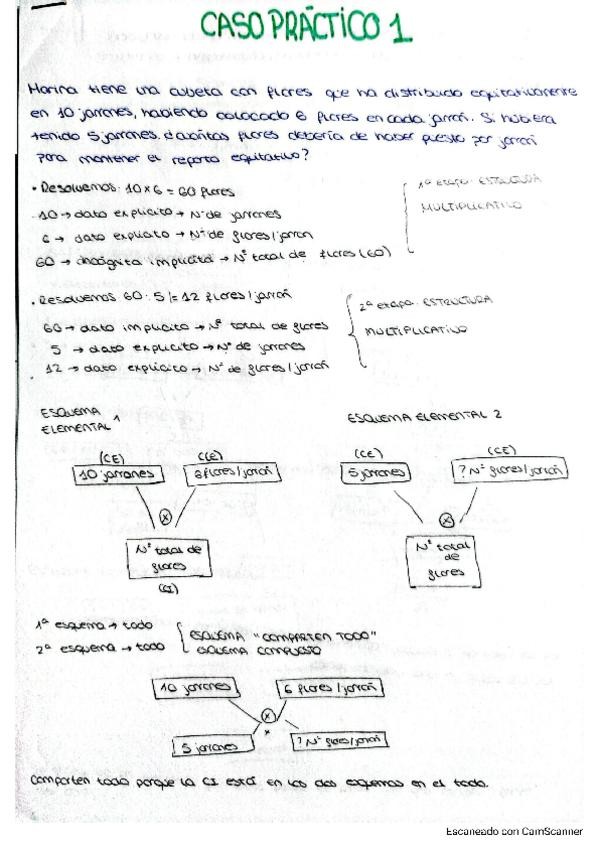 CASO PRÁCTICO 1
Marina tiene una cubeta con flores que ha distribuido equitativamente
en 10 jarrones, habiendo colocado 6 flores en cada jarrón. Si hubiera
tenido 5 jarrones. ¿cuántas flores debería de haber puesto por jarrón
para mantener el reparto equitativo?
• Resolvemos: 10 x 6 = 60 flores
10 → dato explícito → Nº de jarrones
6 → dato explícito → Nº de flores/jarrón
60 → incógnita implícita → Nº total de flores (60)
1ª etapa: ESTRUCTURA
MULTIPLICATIVO
• Resolvemos 60 : 5 = 12 flores/jarrón
60 → dato implícito → Nº total de flores
5 → dato explícito → Nº de jarrones
12 → dato explícito → Nº de flores/jarrón
2ª etapa: ESTRUCTURA
MULTIPLICATIVO
ESQUEMA ELEMENTAL 1
(CE) (CE)
10 jarrones 6 flores/jarrón
x
Nº total de
flores
(CI)
ESQUEMA ELEMENTAL 2
(CE) (CE)
5 jarrones ? Nº flores/jarrón
x
Nº total
de
flores
1ª esquema → todo
2ª esquema → todo
ESQUEMA "COMPARTEN TODO"
ESQUEMA COMPUESTO
10 jarrones 6 flores/jarrón
x
5 jarrones ? Nº flores/jarrón
Comparten todo porque la CI está en los dos esquemas en el todo.
Escaneado con CamScanner